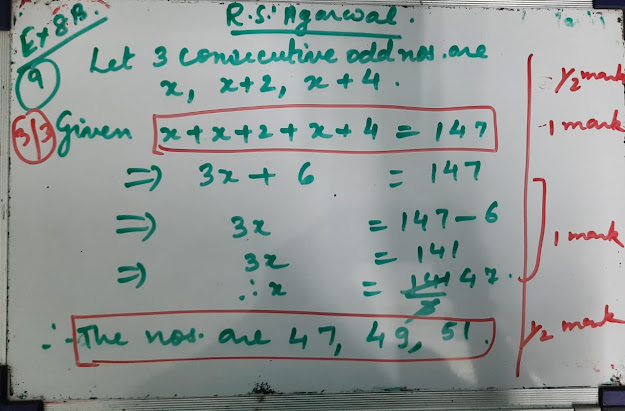 R.S. Agarwal.
Ex 8B.
9 Let 3 consecutive odd nos. are
x, x+2, x+4. 1/2 mark
3/3 Given x+x+2+x+4 = 147 1 mark
⇒ 3x + 6 = 147
⇒ 3x = 147-6
3x = 141 1 mark
⇒ ∴ x = 141/3 47.
∴ The nos. are 47, 49, 51. 1/2 mark